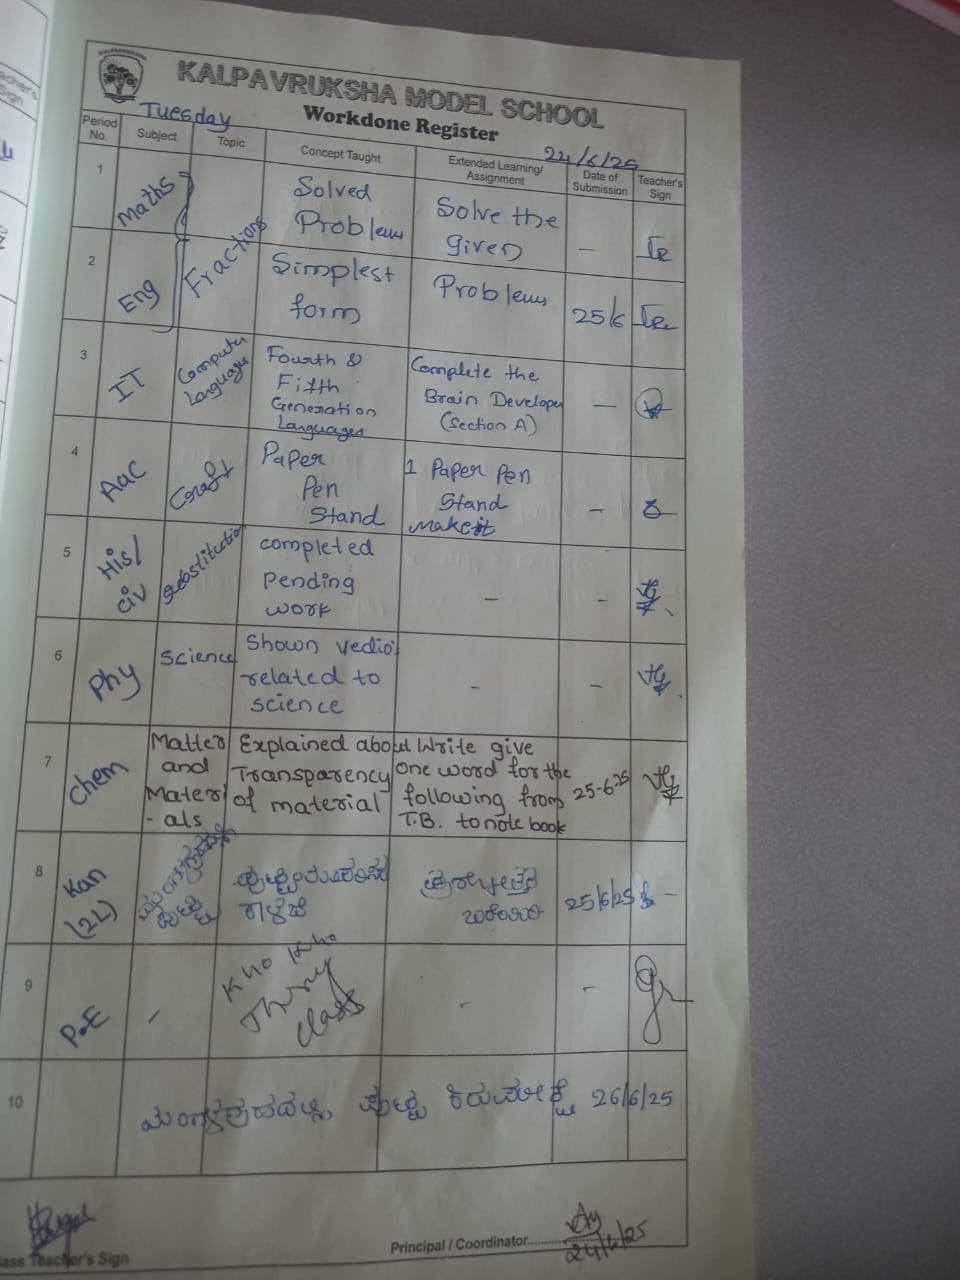 KALPAVRUKSHA MODEL SCHOOL
Workdone Register
Tuesday
24/6/25
Period No.
Subject
Topic
Concept Taught
Extended Learning/ Assignment
Date of Submission
Teacher's Sign
1
Maths
Fractions
Solved
Problems
Solve the
given
-
2
Eng
Simplest
form
Problems
25/6
3
IT
Computer
Languages
Fourth &
Fifth
Generation
Languages
Complete the
Brain Developer
(Section A)
-
4
AaC
Craft
Paper
Pen
Stand
1 Paper Pen
Stand
make it
-
5
His/
civ
substitution
completed
pending
work
-
-
6
Phy
Science
Shown vedio
related to
science
-
-
7
Chem
Matter
and
Materi
- als
Explained about
Transparency
of material
Write give
one word for the
following from
T.B. to note book
25-6-25
8
Kan
(2L)
25/6/25
9
P.E
-
Kho Kho
Thry
class
-
-
10
26/6/25
Teacher's Sign
Principal / Coordinator
24/6/25